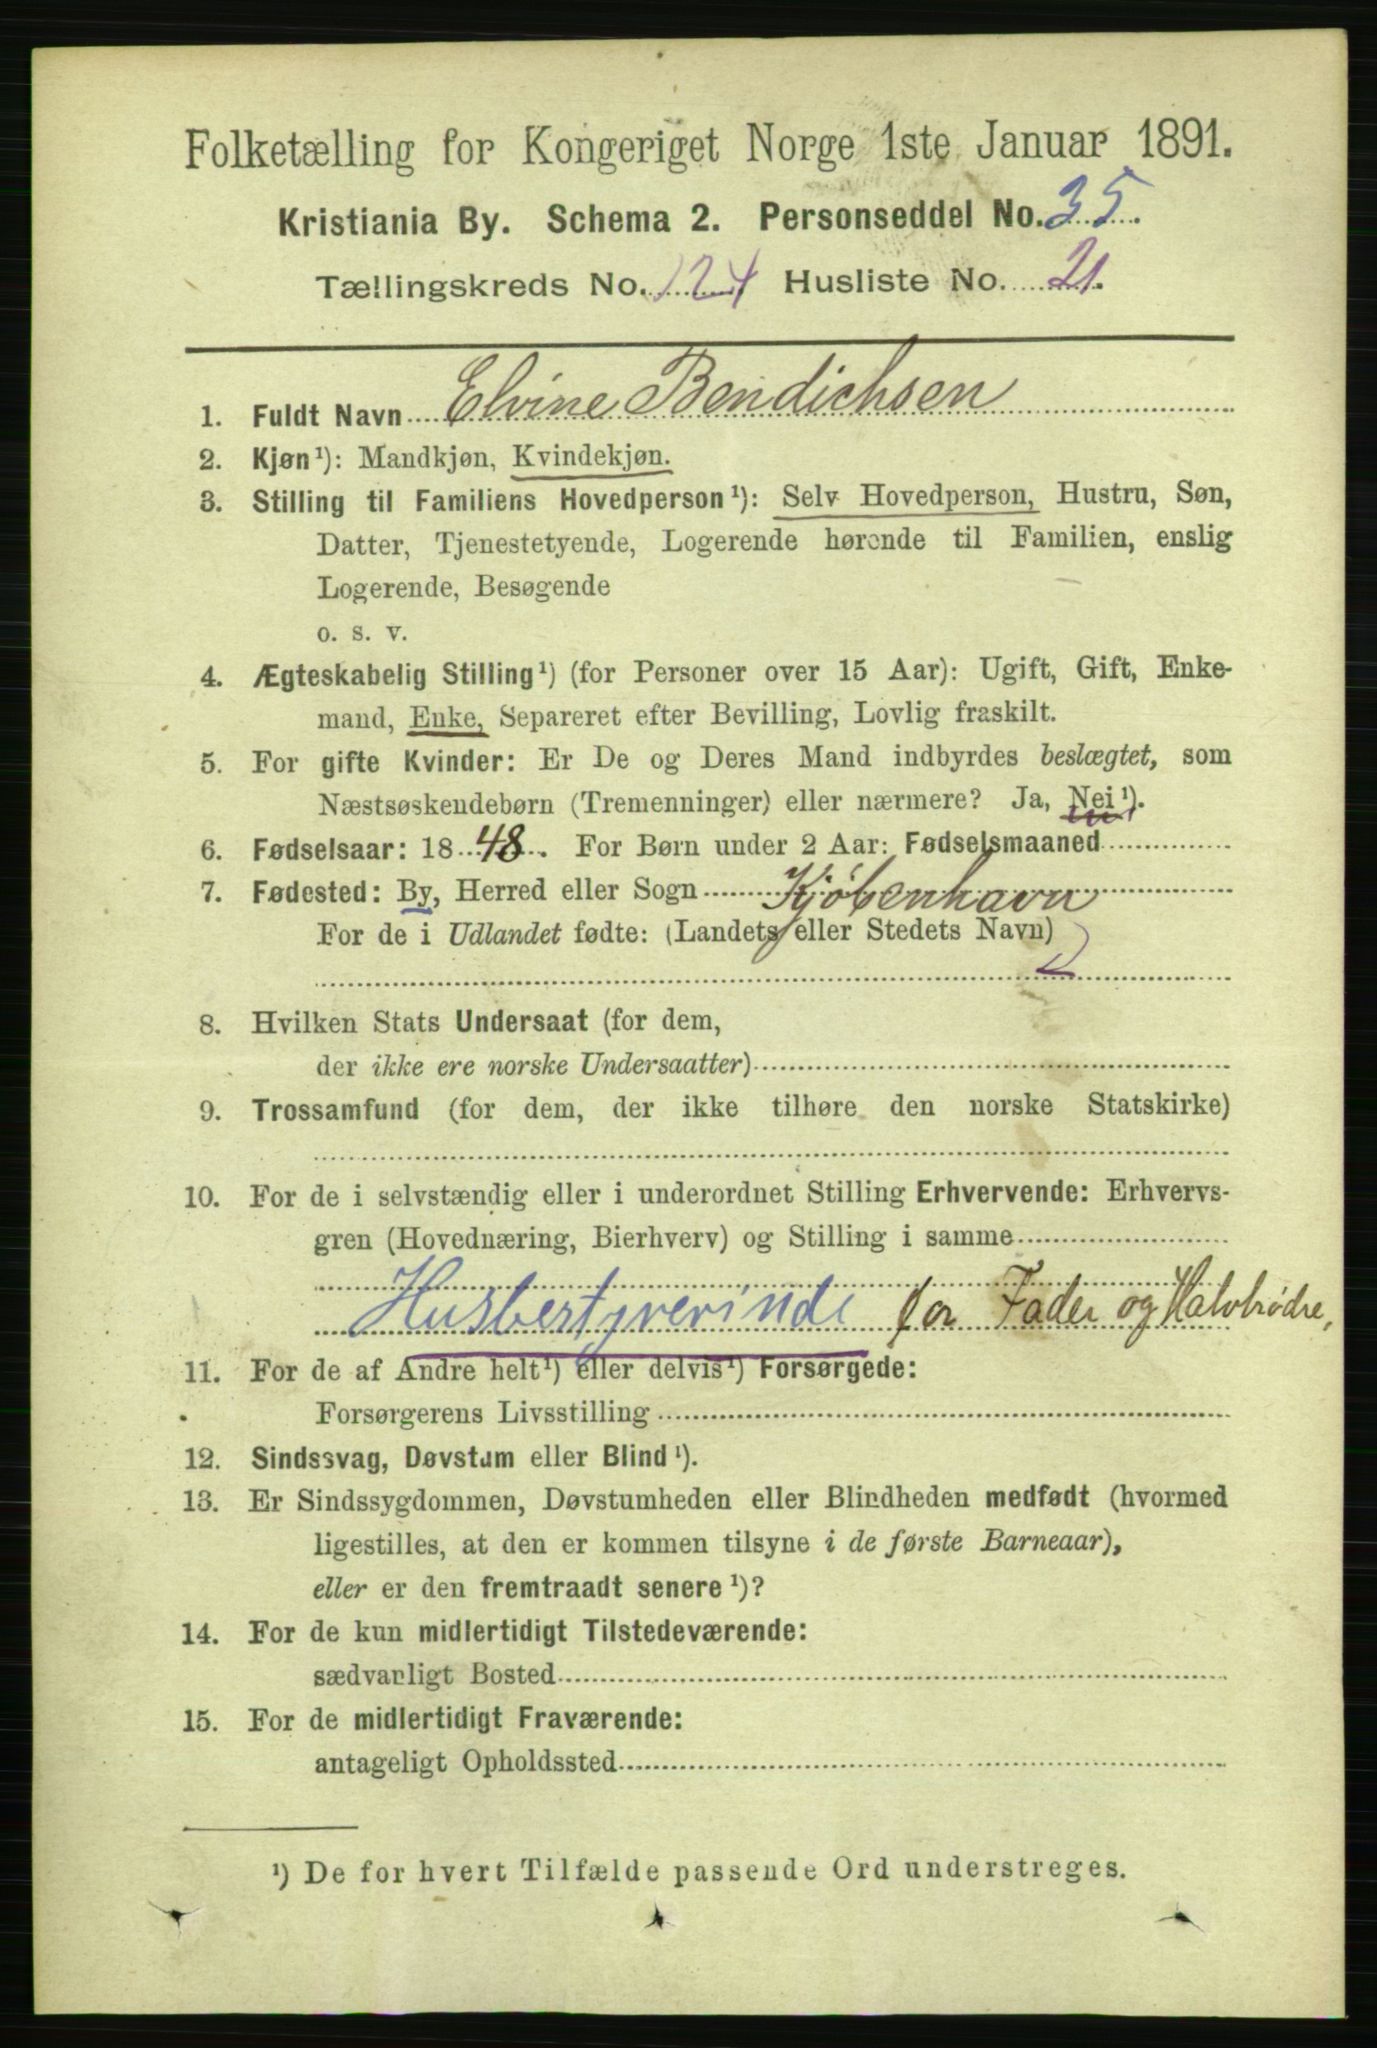 Folketælling for Kongeriget Norge 1ste Januar 1891.
Kristiania By. Schema 2. Personseddel No. 35.
Tællingskreds No. 124 Husliste No. 21.
1. Fuldt Navn Elvine Bendichsen
2. Kjøn¹): Mandkjøn, Kvindekjøn.
3. Stilling til Familiens Hovedperson¹): Selv Hovedperson, Hustru, Søn,
Datter, Tjenestetyende, Logerende hørende til Familien, enslig
Logerende, Besøgende
o. s. v.
4. Ægteskabelig Stilling¹) (for Personer over 15 Aar): Ugift, Gift, Enke-
mand, Enke, Separeret efter Bevilling, Lovlig fraskilt.
5. For gifte Kvinder: Er De og Deres Mand indbyrdes beslægtet, som
Næstsøskendebørn (Tremenninger) eller nærmere? Ja, Nei¹).
6. Fødselsaar: 1848. For Børn under 2 Aar: Fødselsmaaned
7. Fødested: By, Herred eller Sogn Kjøbenhavn
For de i Udlandet fødte: (Landets eller Stedets Navn)
8. Hvilken Stats Undersaat (for dem,
der ikke ere norske Undersaatter)
9. Trossamfund (for dem, der ikke tilhøre den norske Statskirke)
10. For de i selvstændig eller i underordnet Stilling Erhvervende: Erhvervs-
gren (Hovednæring, Bierhverv) og Stilling i samme
Husbestyrerinde for Fader og Halvbrødre,
11. For de af Andre helt¹) eller delvis¹) Forsørgede:
Forsørgerens Livsstilling
12. Sindssvag, Døvstum eller Blind¹).
13. Er Sindssygdommen, Døvstumheden eller Blindheden medfødt (hvormed
ligestilles, at den er kommen tilsyne i de første Barneaar),
eller er den fremtraadt senere¹)?
14. For de kun midlertidigt Tilstedeværende:
sædvanligt Bosted
15. For de midlertidigt Fraværende:
antageligt Opholdssted
¹) De for hvert Tilfælde passende Ord understreges.